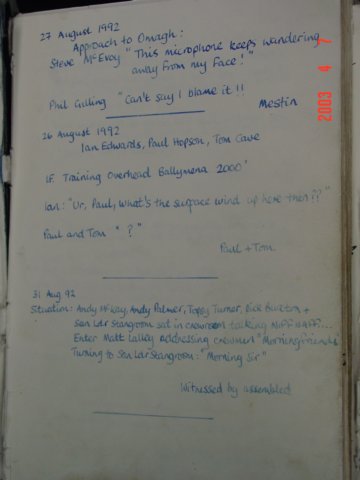 27 August 1992
Approach to Omagh:
Steve McEvoy "This microphone keeps wandering
away from my face!"
Phil Gilling "Can't say I blame it!!
Mestin
26 August 1992
Ian Edwards, Paul Hopson, Tom Cave
IF Training Overhead Ballymena 2000'
Ian: "Ur, Paul, what's the surface wind up here then??"
Paul and Tom "?"
Paul + Tom
31 Aug 92
Situation: Andy McKay, Andy Palmer, Topsy Turner, Dick Buxton +
Sqn Ldr Stangroom sat in crewroom talking NIFF NAFF...
Enter Matt Lalley Addressing crewmen "Morning friends
Turning to Sqn Ldr Stangroom: "Morning Sir"
Witnessed by assembled
2003 4 7